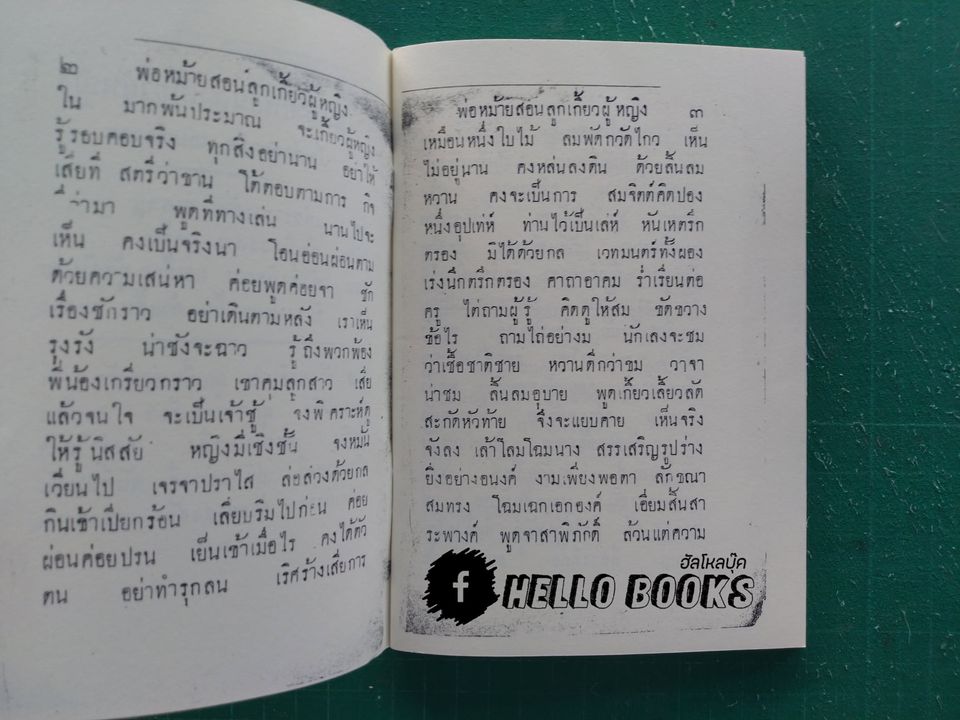 ๒ พ่อหม้ายสอนลูกเกี้ยวผู้หญิง
ใน มากพันประมาณ จะเกี้ยวผู้หญิง
รู้รอบคอบจริง ทุกสิ่งอย่านาน อย่าให้
เสียที สตรีว่าขาน โต้ตอบตามการ กิจ
ว่ามา พูดที่ทางเล่น นานไปจะ
เห็น คงเป็นจริงนา โอนอ่อนผ่อนตาม
ด้วยความเสน่หา ค่อยพูดค่อยจา ชัก
เรื่องชักราว อย่าเดินตามหลัง เราเห็น
รุงรัง น่าชังจะฉาว รู้ถึงพวกพ้อง
พี่น้องเกรียวกราว เขาคุมลูกสาว เสีย
แล้วจนใจ จะเป็นเจ้าชู้ จงพิเคราะห์ดู
ให้รู้นิสสัย หญิงมีเชิงชั้น จงหมั่น
เวียนไป เจรจาปราไส ล่อลวงด้วยกล
กินเข้าเปียกร้อน เลียบริมไปก่อน ค่อย
ผ่อนค่อยปรน เย็นเข้าเมื่อไร คงได้ตัว
ตน อย่าทำรุกลน เริศร้างเสียการ
พ่อหม้ายสอนลูกเกี้ยวผู้หญิง ๓
เหมือนหนึ่งใบไม้ ลมพัดกวัดไกว เห็น
ไม่อยู่นาน คงหล่นลงดิน ด้วยลิ้นลม
หวาน คงจะเป็นการ สมจิตต์คิดปอง
หนึ่งอุปเท่ห์ ท่านไว้เป็นเล่ห์ หันเหตรึก
ตรอง มิได้ด้วยกล เวทมนตร์ทั้งผอง
เร่งนึกตรึกตรอง คาถาอาคม ร่ำเรียนต่อ
ครู ไต่ถามผู้รู้ คิดดูให้สม ขัดขวาง
ข้อไร ถามไถ่อย่างม นักเลงจะชม
ว่าเชื้อชาติชาย หวานดีกว่าขม วาจา
น่าชม ลิ้นลมอุบาย พูดเกี้ยวเลี้ยวลัด
สะกัดหัวท้าย จึงจะแยบคาย เห็นจริง
จังลง เล้าโลมโฉมนาง สรรเสริญรูปร่าง
ยิ่งอย่างอนงค์ งามเพียงพอตา ลักขณา
สมทรง โฉมเฉกเอกองค์ เอี่ยมสิ้นสา
ระพางค์ พูดจาสาพิภักดิ์ ล้วนแต่ความ
ฮัลโหลบุ๊ค
f HELLO BOOKS